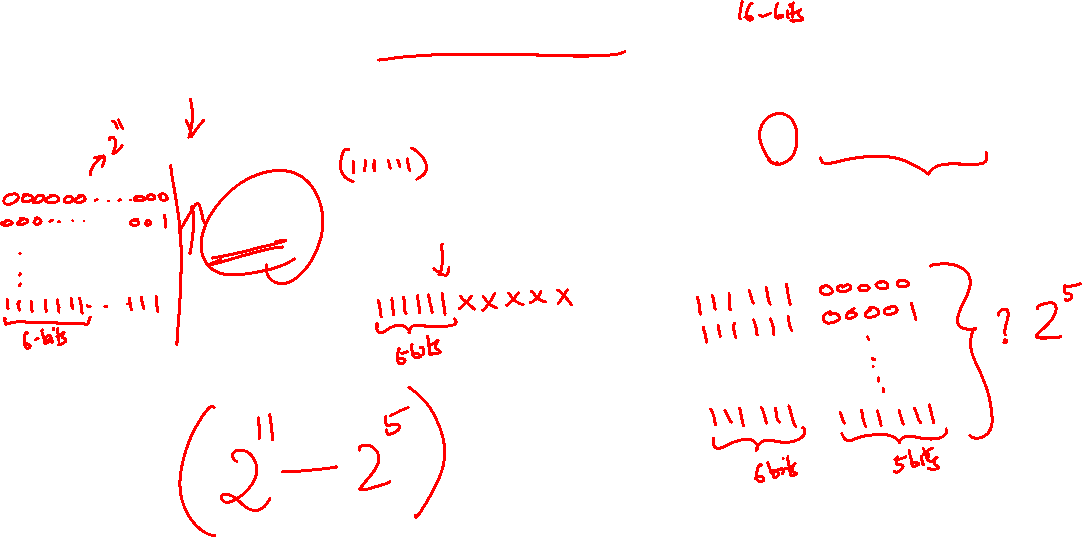 16-bits
2^11
0000000....000
000.... 001
(111111)
1111111..111
6-bits
111111xxxxx
6bits
111111 00000
111111 00001
? 2^5
111111 111111
6bits 5bits
(2^11 - 2^5)
0